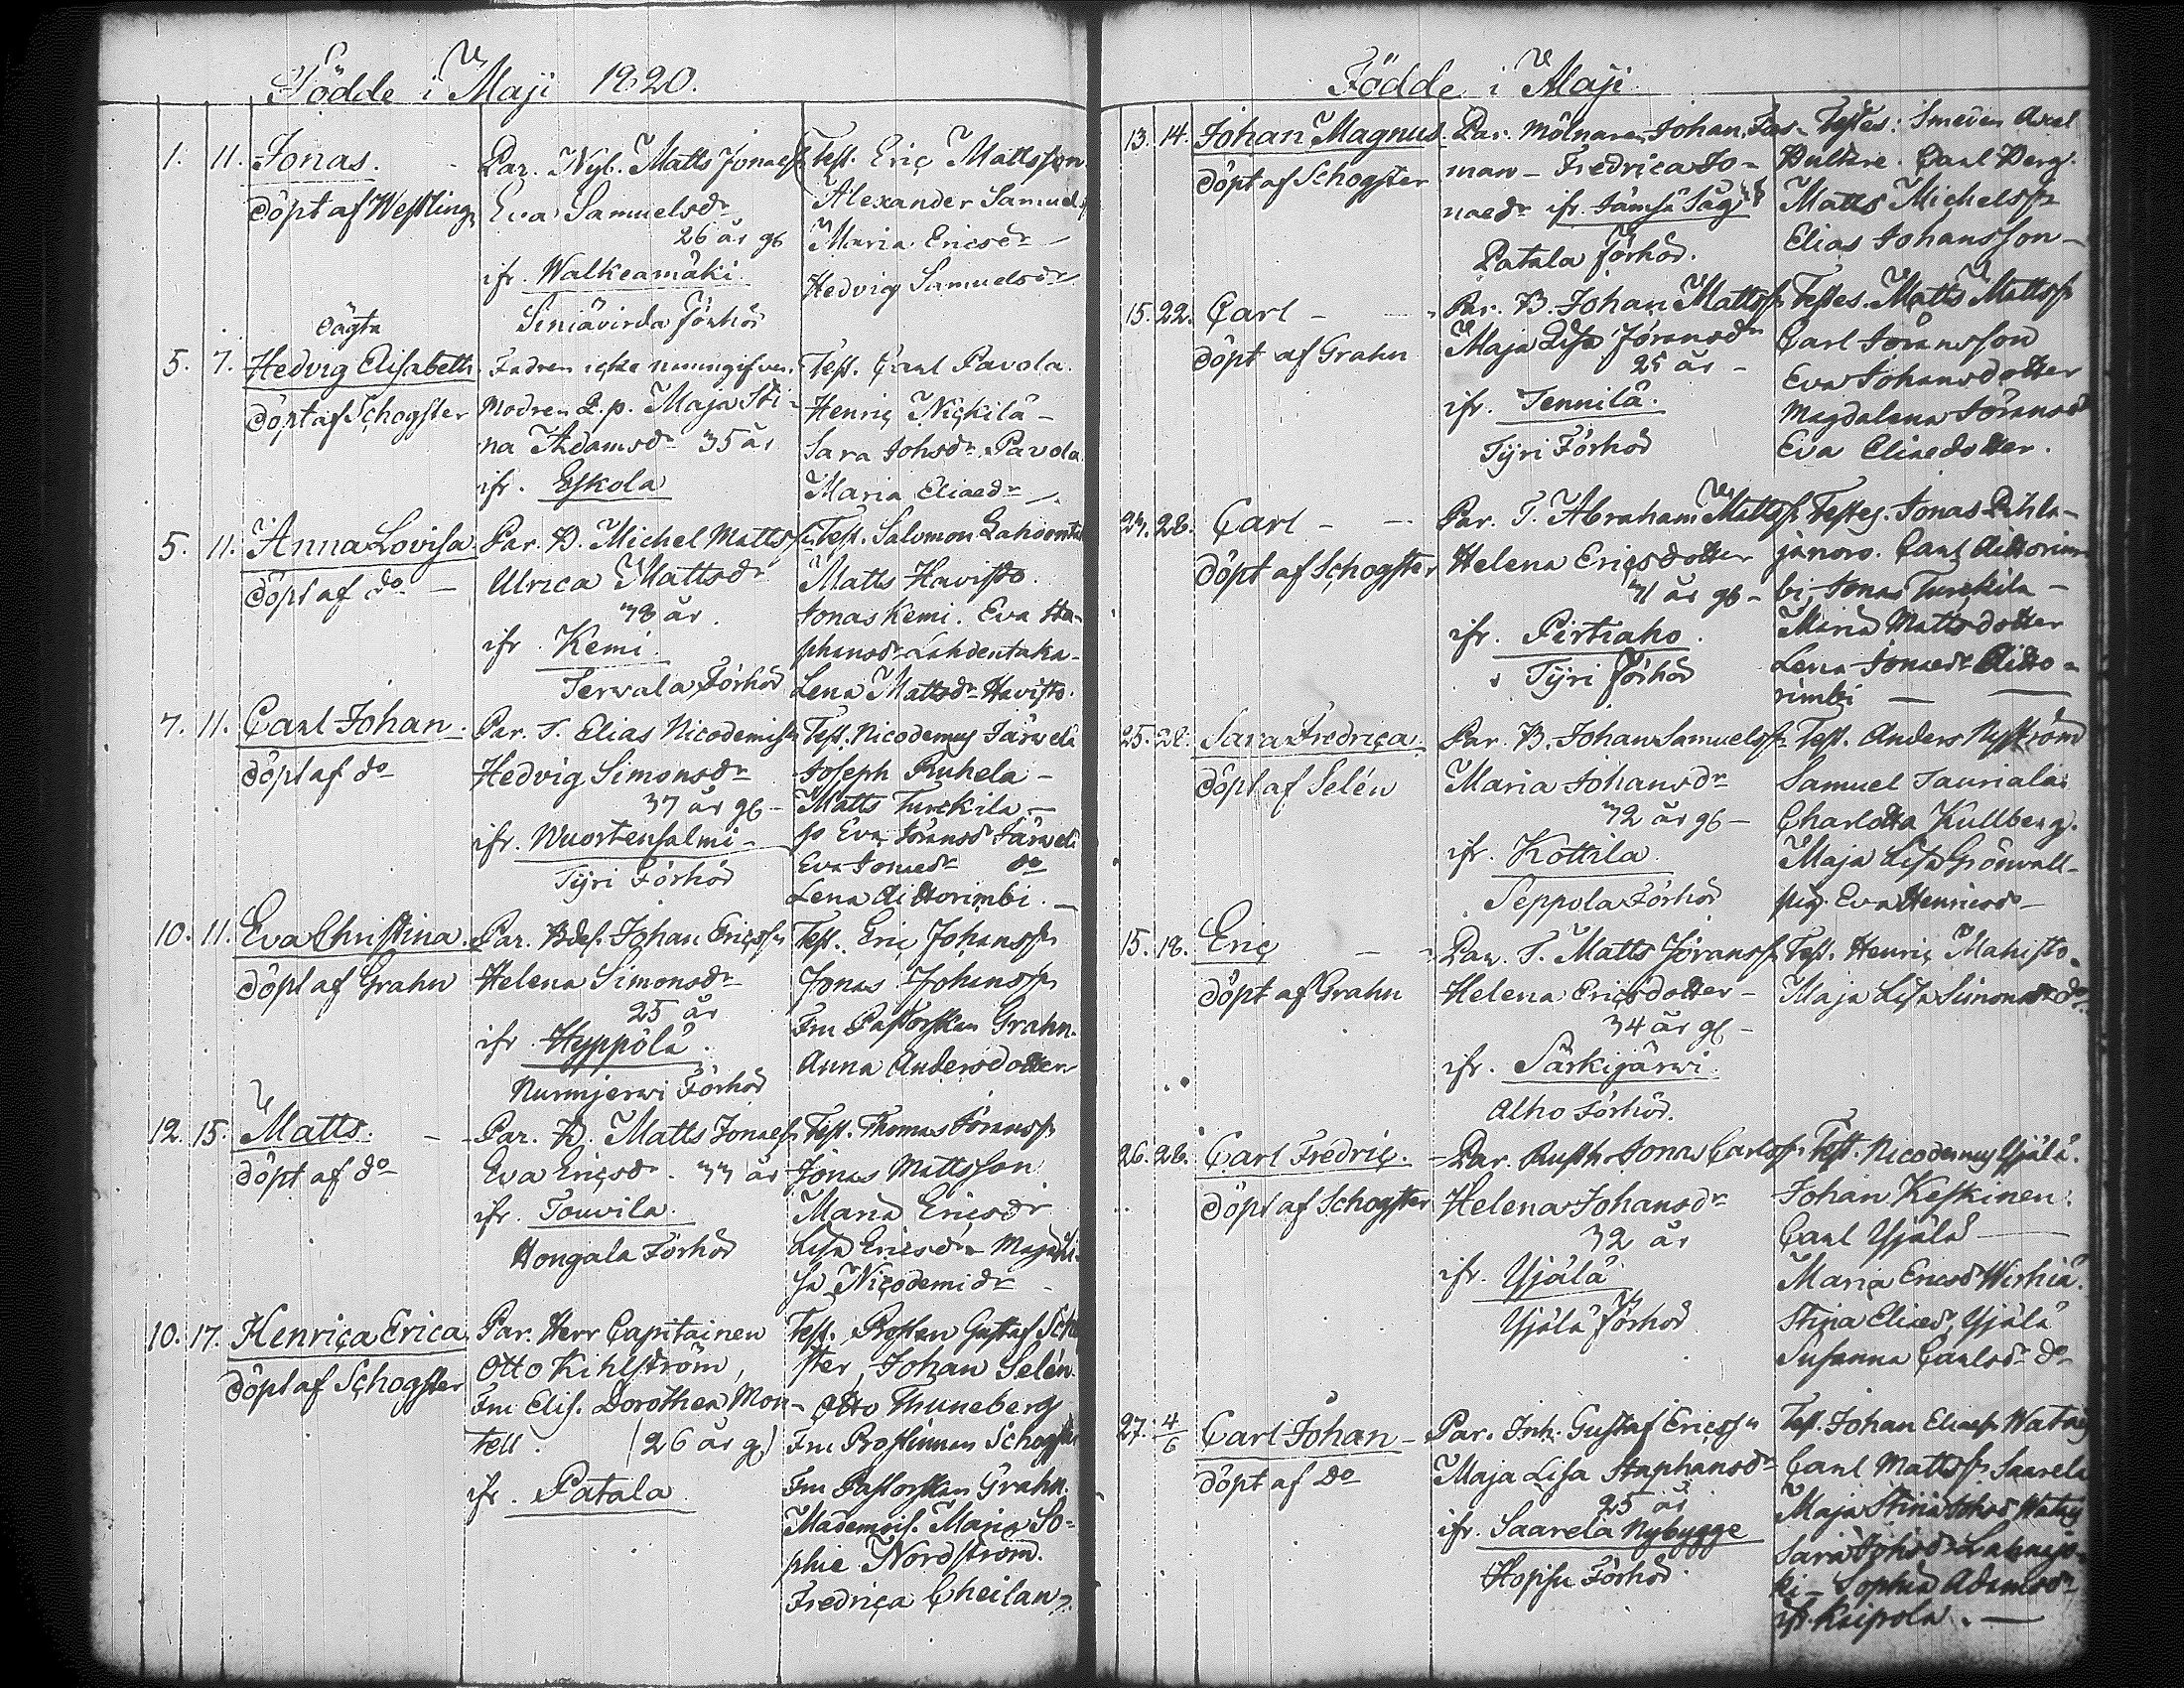 Födde i Maji 1820.
1. 11. Jonas.
döpt af Westling
Par. Nyb. Matts Jonaess.
Eva Samuelsdr
26 år gl
ifr. Walkeamäki
Siniävirda förhör
Test. Eric Mattsson
Alexander Samuels
Maria Ericsdr
Hedvig Samuelsdr
oägta
5. 7. Hedvig Elisabeth
döpt af Schogster
Fadren icke namngifven.
Modren Q.p. Maja Sti-
na Adamsdr 35 år
ifr. Eskola
Test. Carl Pavola.
Henric Nickilä
Sara Johsdr Pavola
Maria Eliaedr
5. 11. Anna Lovisa
döpt af do
Par. B. Michel Mattss.
Ulrica Mattsdr
38 år.
ifr. Kemi
Terwala Förhör
Test. Salomon
Matts Havisto
Jonas Kemi. Eva Sta-
phansdr Lahdentaka
Lena Mattsdr Havisto.
7. 11. Carl Johan.
döpt af do
Par. T. Elias Nicodemiss
Hedvig Simonsdr
37 år gl
ifr. Wuortensalmi
Tyri Förhör
Test. Nicodemus Järvelä
Joseph Ruhela
Matts Turckila
Eva Göransdr Järvelä
Eva Jonaedr do
Lena Aittorimbi.
10. 11. Eva Christina
döpt af Grahn
Par. Bdes. Johan Ericss
Helena Simonsdr
25 år
ifr. Hyppölä.
Nurmjerwi Förhör
Test. Eric Johanss
Jonas Johanss
Fru Pastorskan Grahn.
Anna Andersdotter
12. 15. Matts.
döpt af do
Par. B. Matts Jonaess
Eva Ericsdr. 33 år
ifr. Touvila.
Hongala Förhör
Test. Thomas Göranss
Jonas Mattsson
Maria Ericsdr
Lisa Ericsdr Maja Li-
sa Nicodemidr
10. 17. Henrica Erica
döpt af Schogster
Par. Herr Capitainen
Otto Kihlström,
Fru Elis. Dorothea Mon-
tell. (26 år g)
ifr. Patala
Test. Prosten Gustaf Scho
ster, Johan Selén.
Otto Thuneberg
Fru Prostinnan Schogster
Fru Pastorskan Grahn.
Mademois. Maria So-
phie Nordström.
Fredrica Cheilan
Födde i Maji
13. 14. Johan Magnus
döpt af Schogster
Par. Mölnaren Johan Fors-
man - Fredrica Jo-
naedr ifr. Jämsä Såg
Patala förhör.
Testes: Smeden Axel
Hultzre. Carl Berg.
Matts Michelss
Elias Johansson
15. 22. Carl
döpt af Grahn
Par. B. Johan Mattss
Maja Lisa Göransdr
25 år
ifr. Tennilä.
Tyri Förhör
Testes. Matts Mattss
Carl Göransson
Eva Johansdotter
Magdalena Göransdr
Eva Eliaedotter.
24. 28. Carl
döpt af Schogster
Par. T. Abraham Mattss
Helena Ericsdotter
31 år gl
ifr. Pirtiaho.
Tyri Förhör
Testes. Jonas Pihla-
janoro. Carl Aittorim-
bi, Jonas Turckila
Maria Mattsdotter
Lena Jonaedr Aitto-
rimbi
25. 28. Sara Fredrica
döpt af Selén
Par. B. Johan Samuelss
Maria Johansdr
32 år gl
ifr. Kottila
Seppola Förhör
Test. Anders Nyström
Samuel Sauriala
Charlotta Kullberg.
Maja Lisa Grönvall
pig. Eva Henricsdr
15. 18. Eric
döpt af Grahn
Par. T. Matts Göranss
Helena Ericsdotter
34 år gl
ifr. Särkijärwi.
Alho förhör.
Test. Henric Mahisto
Maja Lisa Simonsdr do
26. 28. Carl Fredric.
döpt af Schogster
Par. Rusth. Jonas Carlss
Helena Johansdr
32 år
ifr. Yjälä
Yjälä förhör
Test. Nicodemus Yjälä.
Johan Keskinen.
Carl Yjälä
Maria Ericsdr Wirhiä.
Stina Eliaedr Yjälä
Susanna Carlsdr do
27. 4/6 Carl Johan
döpt af do
Par. Inh. Gustaf Ericss
Maja Lisa Staphansdr
25 år
ifr. Saarela Nybygge
Hopsu Förhör.
Test. Johan Eliaess
Carl Mattss. Saarela
Maja Stina
Sara Johsdr
ki - Sophia Adamsdr
ifr. Kaipola.